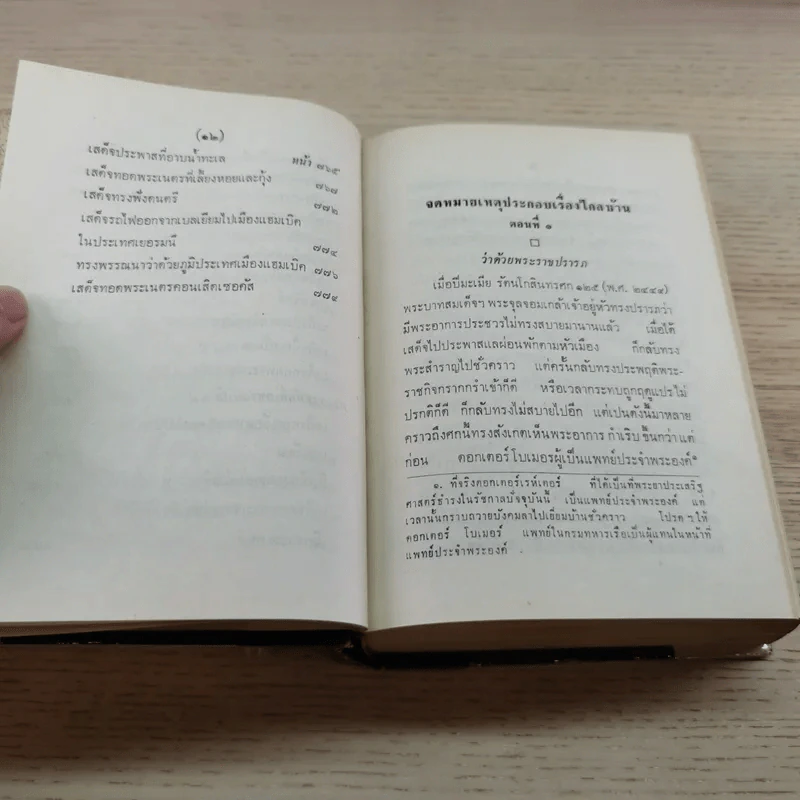 (๑๒)
เสด็จประพาสที่อาบน้ำทะเล หน้า ๗๖๕
เสด็จทอดพระเนตรที่เลี้ยงหอยและกุ้ง ๗๖๗
เสด็จทรงฟังดนตรี ๗๗๒
เสด็จรถไฟออกจากเบลเยียมไปเมืองแฮมเบิค
ในประเทศเยอรมนี ๗๗๔
ทรงพรรณนาว่าด้วยภูมิประเทศเมืองแฮมเบิค ๗๗๖
เสด็จทอดพระเนตรคอนเสิตเซอคัส ๗๗๙
จดหมายเหตุประกอบเรื่องไกลบ้าน
ตอนที่ ๑
ว่าด้วยพระราชปรารภ
เมื่อปีมะเมีย รัตนโกสินทรศก ๑๒๕ (พ.ศ. ๒๔๔๙)
พระบาทสมเด็จฯ พระจุลจอมเกล้าเจ้าอยู่หัวทรงปรารภว่า
มีพระอาการประชวรไม่ทรงสบายมานานแล้ว เมื่อได้
เสด็จไปประพาสแลผ่อนพักตามหัวเมือง ก็กลับทรง
พระสำราญไปชั่วคราว แต่ครั้นกลับทรงประพฤติพระ-
ราชกิจกรากกรำเข้าก็ดี หรือเวลากระทบถูกฤดูแปรไม่
ปรกติก็ดี ก็กลับทรงไม่สบายไปอีก แต่เปนดังนี้มาหลาย
คราวถึงศกนี้ทรงสังเกตเห็นพระอาการ กำเริบ ขึ้นกว่า แต่
ก่อน ดอกเตอร์ โบเมอร์ผู้เป็นแพทย์ประจำพระองค์๑
๑. ที่จริงดอกเตอร์เรห์เตอร์ ที่ได้เป็นที่พระยาประเสริฐ
ศาสตร์ธำรงในรัชกาลปัจจุบันนี้ เป็นแพทย์ประจำพระองค์ แต่
เวลานั้นกราบถวายบังคมลาไปเยี่ยมบ้านชั่วคราว โปรด ฯ ให้
ดอกเตอร์ โบเมอร์ แพทย์ในกรมทหารเรือเป็นผู้แทนในหน้าที่
แพทย์ประจำพระองค์ .